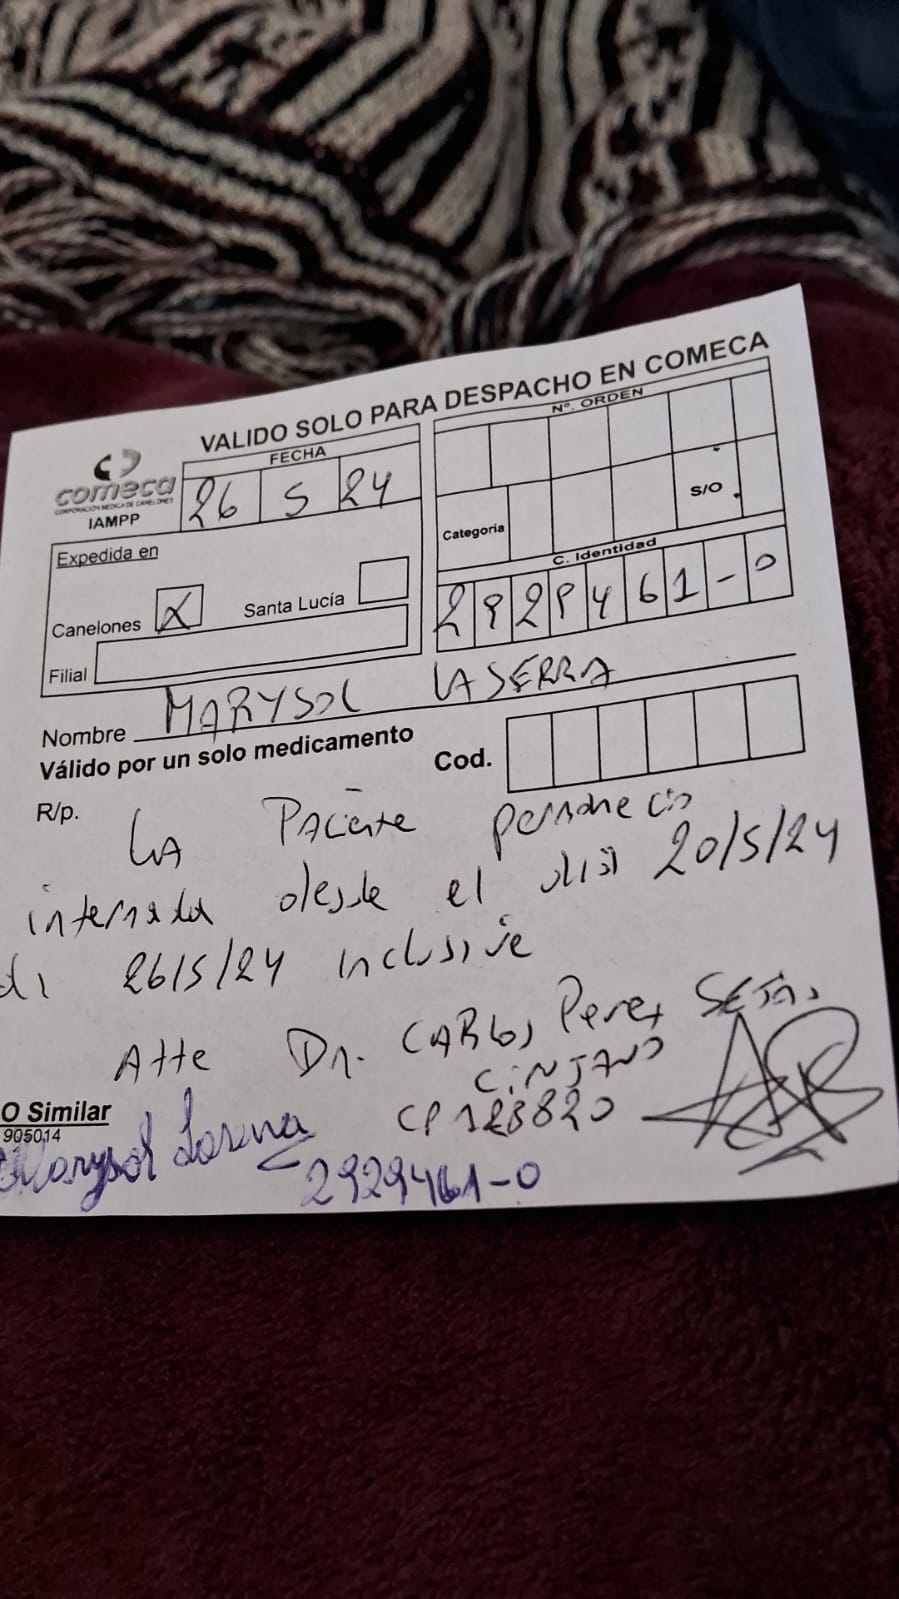 VALIDO SOLO PARA DESPACHO EN COMECA
comeca
CORPORACIÓN MEDICA DE CANELONES
IAMPP
FECHA
26 5 24
Nº. ORDEN
Categoria
S/O
Expedida en
Canelones X Santa Lucía
Filial
C. Identidad
2929461-0
Nombre MARYSOL LASERRA
Válido por un solo medicamento
Cod.
R/p.
LA Paciente permanecio
internada desde el día 20/5/24
26/5/24 inclusive
Atte Dr. CARLOS Perez
CP 128820
O Similar
905014
Marysol
2929461-0